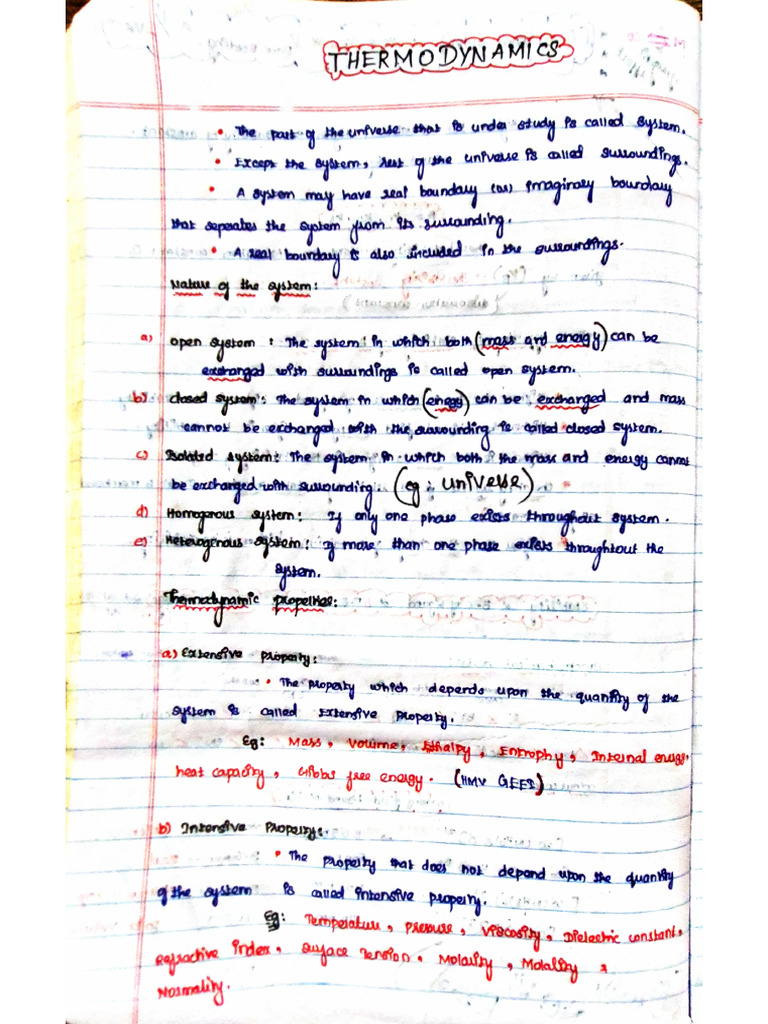 THERMODYNAMICS
• The part of the universe that is under study is called system.
• Except the system, rest of the universe is called surroundings.
• A system may have real boundary (or) imaginary boundary
that seperates the system from its surrounding.
• A real boundary is also included in the surroundings.
Nature of the system:
a) open system : The system in which both (mass and energy) can be
exchanged with surroundings is called open system.
b) closed system : The system in which (energy) can be exchanged and mass
cannot be exchanged with the surrounding is called closed system.
c) Isolated system : The system in which both the mass and energy cannot
be exchanged with surrounding. (eg : universe.)
d) Homogenous system : If only one phase exists throughout system.
e) Heterogenous system : If more than one phase exists throughtout the
system.
Thermodynamic properties:
a) Extensive property:
• The property which depends upon the quantity of the
system is called Extensive property.
Eg: Mass, volume, Ethalpy, Entrophy, Internal energy,
heat capacity, Gibbs free energy. (HMV GEEI)
b) Intensive Property:
• The property that does not depend upon the quantity
of the system is called intensive property.
Eg: Temperature, pressure, viscosity, Dielectric constant,
Refractive index, surface Tension, Molarity, Molality &
Normality.